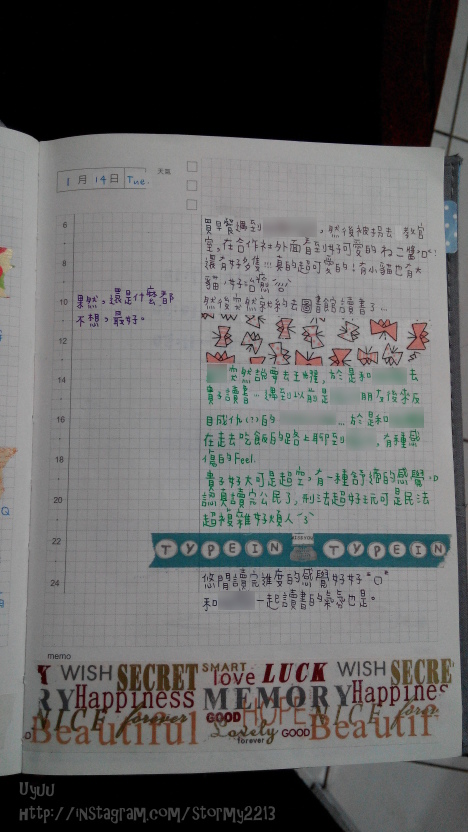 1月14日 Tue.
天氣
6
8
10
12
14
16
18
20
22
24
果然,還是什麼都
不想,最好。
買早餐遇到 ,然後被拐去 教官
室,在合作社外面看到好可愛的ねこ醬
還有好多隻…真的超可愛的!有小貓也有大
貓!好治癒
然後突然就約去圖書館讀書了…
突然說要去 ,於是和 去
讀書…遇到以前是 朋友後來反
目成仇(?)的 …於是和
在走去吃飯的路上聊到 ,有種感
傷的Feel.
好大可是超空,有一種舒適的感覺:D
認真讀完公民了,刑法超好玩可是民法
超複雜好煩人
TYPEIN TYPEIN
悠閒讀完進度的感覺好好
和 一起讀書的氣氛也是。
memo
WISH SECRET SMART love LUCK WISH SECRE
RY Happiness MEMORY Happines
NICE forever GOOD HOPE NICE
Beautiful Lovely forever GOOD Beautif
UyUU
http://instagram.com/stormy2213